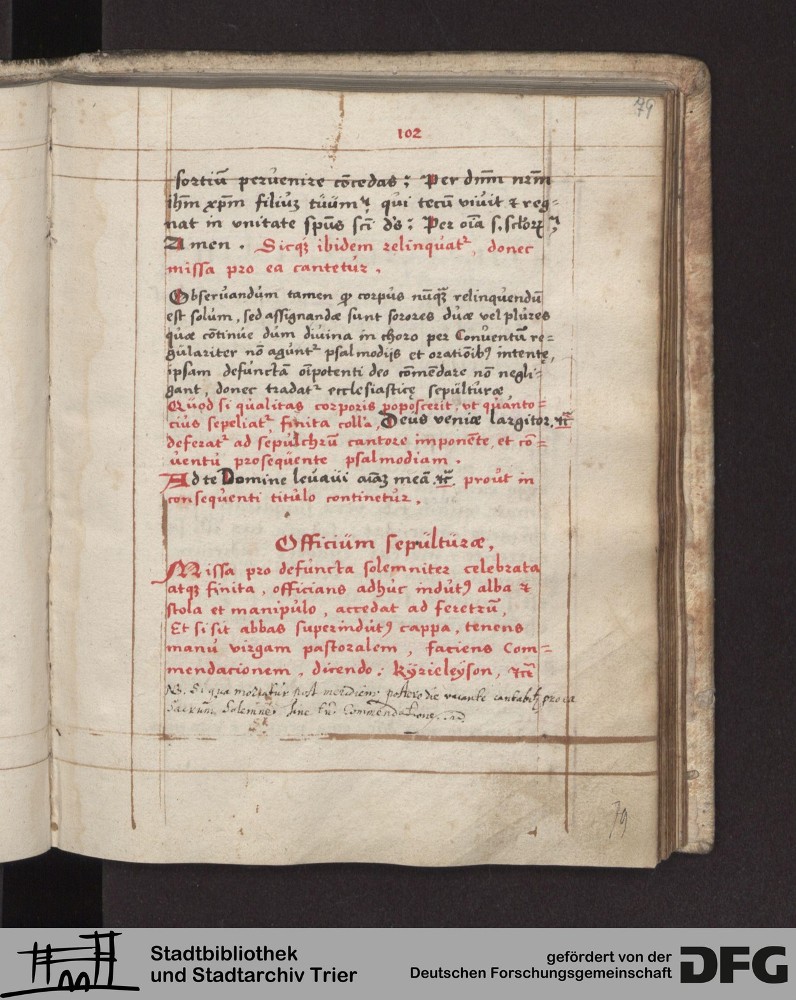 79
102
sortiū pervenire cōcedas; Per dnm̄ nrm̄
ihm̄ xpm̄ filiuȝ tuum qui tecū vivit & reg=
nat in vnitate spūs sc̄i ds; Per oīa s. sclorꝝ
Amen. Sicqȝ ibidem relinquatr, donec
missa pro ea cantetur.
Observandum tamen ꝙ corpus nūqȝ relinquendū
est solum, sed assignandæ sunt sorores duæ vel plures
quæ cōtinue dum divina in choro per Conventū re=
gulariter nō aguntr psalmodijs et oratiōibꝰ intentę,
ipsam defunctā oīpotenti deo cōmēdare nō negli=
gant, donec tradatr ecclesiasticę sepulturæ
Quod si qualitas corporis poposcerit, vt quanto=
cius sepeliatr, finita colla, Deus veniæ largitor, &c̄
deferatr ad sepulchrū cantore imponēte, et cō=
uentu prosequente psalmodiam.
Ad te Domine levavi aīaȝ meā, &c̄, prout in
consequenti titulo continetur.
Officium sepulturæ,
Missa pro defuncta solemniter celebrata
atqȝ finita, officians adhuc indutꝰ alba &
stola et manipulo, accedat ad feretrū,
Et si sit abbas superindutꝰ cappa, tenens
manu virgam pastoralem, faciens Com=
mendacionem, dicendo: Kyrieleyson, &c̄
NB. Si qua moriatur post meridiem postero die vacante cantabitr pro ea
Sacrum Solemne: hinc Commendatione.
79
Stadtbibliothek
und Stadtarchiv Trier
gefördert von der
Deutschen Forschungsgemeinschaft
DFG